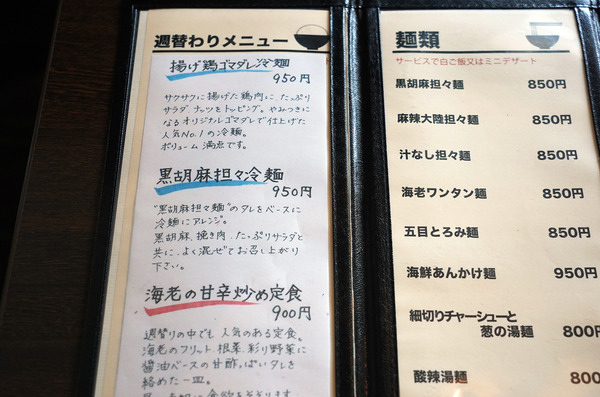 週替わりメニュー
揚げ鶏ゴマダレ冷麺
950円
サクサクに揚げた鶏肉に、たっぷり
サラダ、ナッツをトッピング。やみつきに
なるオリジナルゴマダレで仕上げた
人気No.1の冷麺。
ボリューム満点です。
黒胡麻担々冷麺
950円
"黒胡麻担々麺"のタレをベースに
冷麺にアレンジ。
黒胡麻、挽き肉、たっぷりサラダと
共に、よく混ぜてお召し上がり
下さい。
海老の甘辛炒め定食
900円
週替りの中でも人気のある定食。
海老のフリット、根菜、彩り野菜に
醤油ベースの甘酢っぱいタレを
絡めた一皿。
麺類
サービスで白ご飯又はミニデザート
黒胡麻担々麺 850円
麻辣大陸担々麺 850円
汁なし担々麺 850円
海老ワンタン麺 850円
五目とろみ麺 850円
海鮮あんかけ麺 950円
細切りチャーシューと
葱の湯麺 800円
酸辣湯麺 800